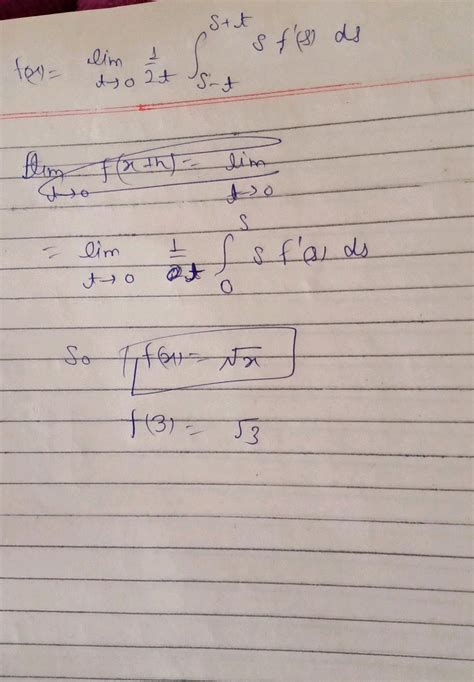 f(x) = lim t→0 1/2t ∫ s-t s+t s f'(s) ds
lim t→0 f(x+h) = lim t→0
= lim t→0 1/2t ∫ 0 s s f'(s) ds
So f(x) = √x
f(3) = √3